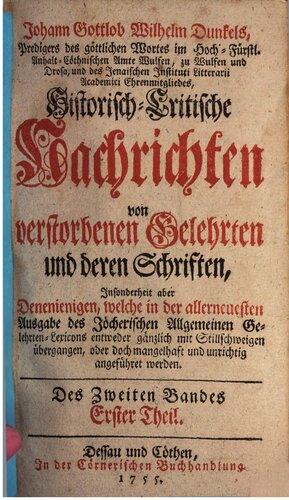 Johann Gottlob Wilhelm Dunkels,
Predigers des göttlichen Wortes im Hoch-Fürstl.
Anhalt-Cöthnischen Amte Wulfen, zu Wulfen und
Drosa, und des Jenaischen Instituti Litterarii
Academici Ehrenmitgliedes,
Historisch-Critische
Nachrichten
von
verstorbenen Gelehrten
und deren Schriften,
Insonderheit aber
Denenienigen, welche in der allerneuesten
Ausgabe des Jöcherischen Allgemeinen Ge-
lehrten-Lexicons entweder gänzlich mit Stillschweigen
übergangen, oder doch mangelhaft und unrichtig
angeführet werden.
Des Zweiten Bandes
Erster Theil.
Dessau und Cöthen,
In der Cörnerischen Buchhandlung
1755.